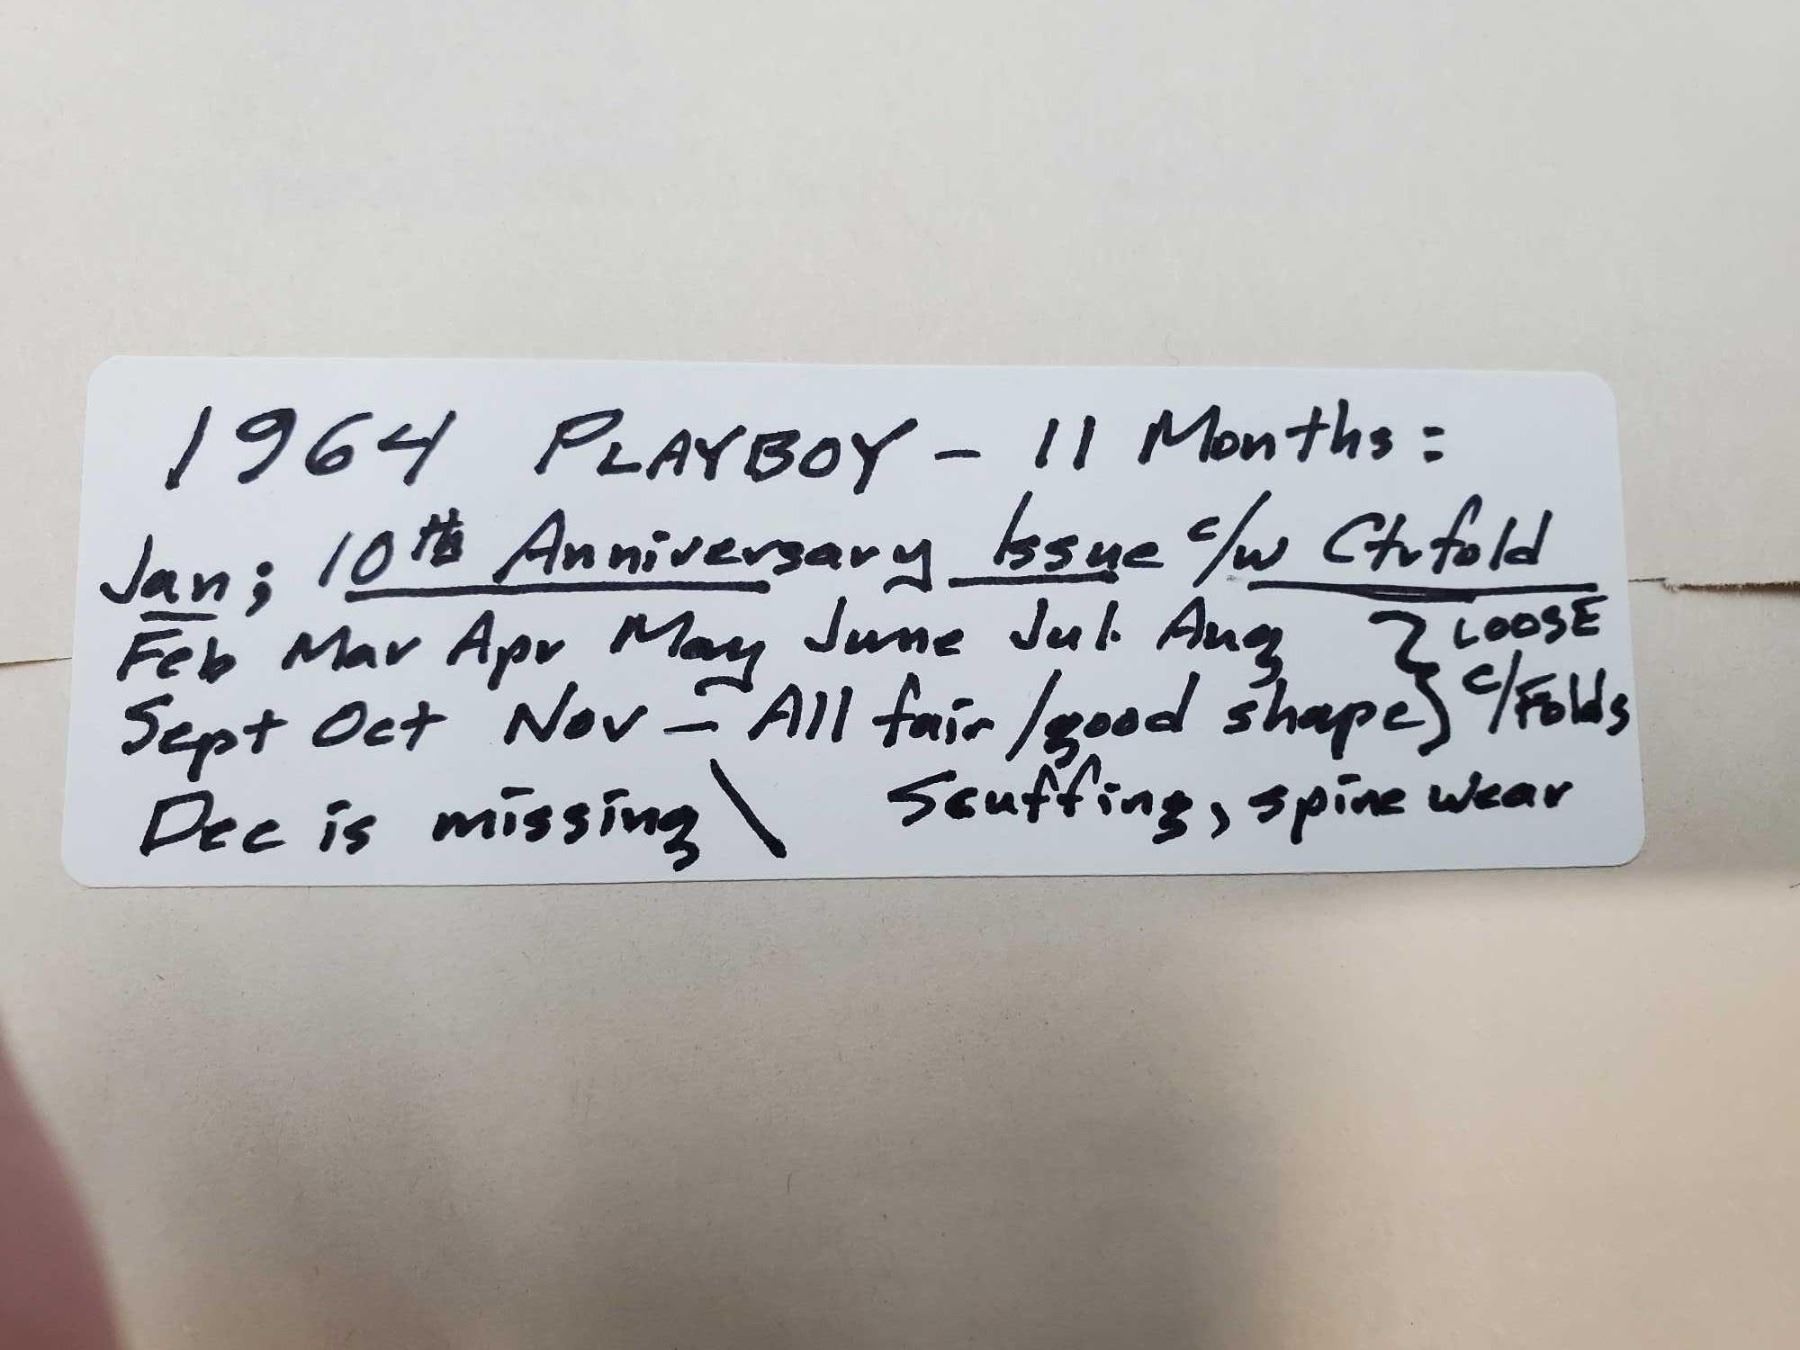 1964 PLAYBOY - 11 Months:
Jan; 10th Anniversary Issue c/w Ctrfold
Feb Mar Apr May June Jul. Aug } LOOSE
Sept Oct Nov - All fair/good shape } c/Folds
Dec is missing \ Scuffing, spine wear